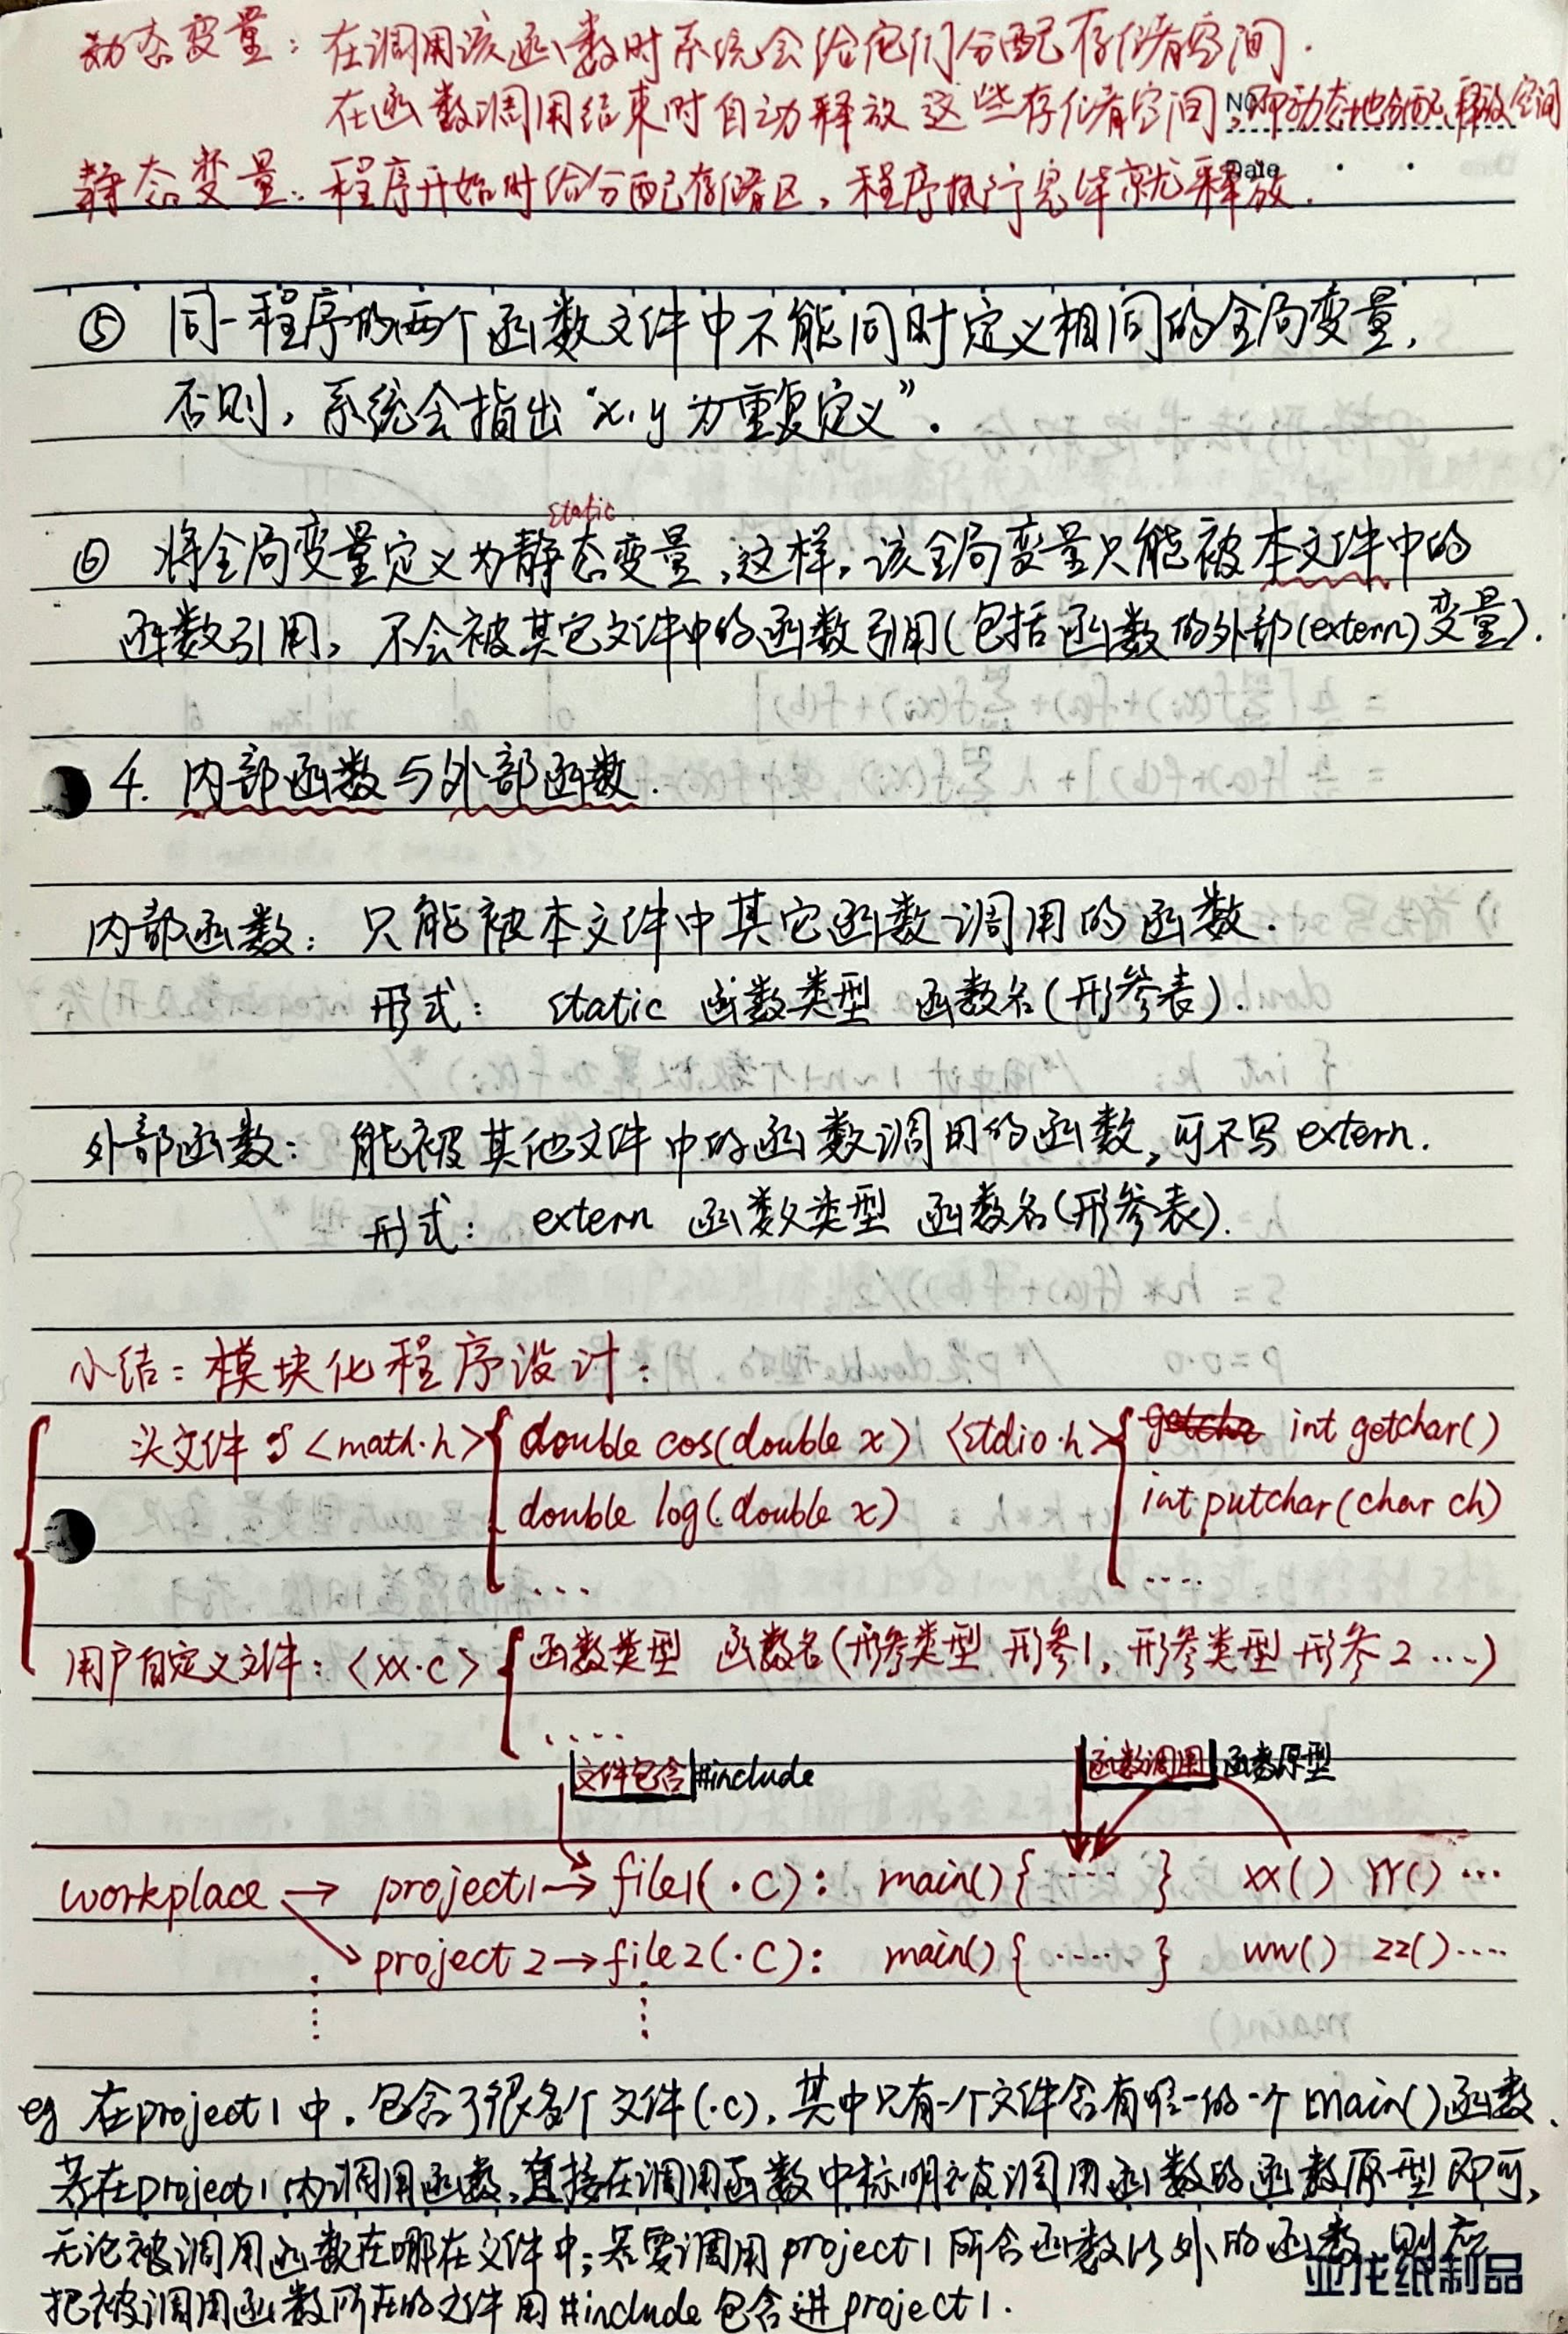 动态变量：在调用该函数时系统会给它们分配存储空间.
在函数调用结束时自动释放这些存储空间,即动态地分配、释放空间
No
Date
静态变量：程序开始时给分配存储区,程序执行完毕就释放.
⑤ 同一程序的两个函数文件中不能同时定义相同的全局变量,
否则,系统会指出“x,y为重复定义”.
static
⑥ 将全局变量定义为静态变量,这样,该全局变量只能被本文件中的
函数引用,不会被其它文件中的函数引用(包括函数的外部(extern)变量).
4. 内部函数与外部函数.
内部函数：只能被本文件中其它函数调用的函数.
形式： static 函数类型 函数名(形参表).
外部函数：能被其他文件中的函数调用的函数,可不写extern.
形式： extern 函数类型 函数名(形参表).
小结：模块化程序设计：
头文件 <math.h> double cos(double x) <stdio.h> getcha int getchar()
double log(double x) int putchar(char ch)
... ....
用户自定义文件：<xx.c> 函数类型 函数名(形参类型 形参1, 形参类型 形参2 ...)
....
文件包含 #include 函数调用 函数原型
workplace → project1 → file1(.C): main(){ .... } xx() YY() ...
project2 → file2(.C): main(){ ..... } ww() zz()....
eg 在project1中,包含了很多个文件(.c),其中只有一个文件含有唯一的一个main()函数、
若在project1内调用函数,直接在调用函数中标明被调用函数的函数原型即可,
无论被调用函数在哪在文件中;若要调用project1所含函数以外的函数,则应
把被调用函数所在的文件用#include包含进project1.
亚龙纸制品